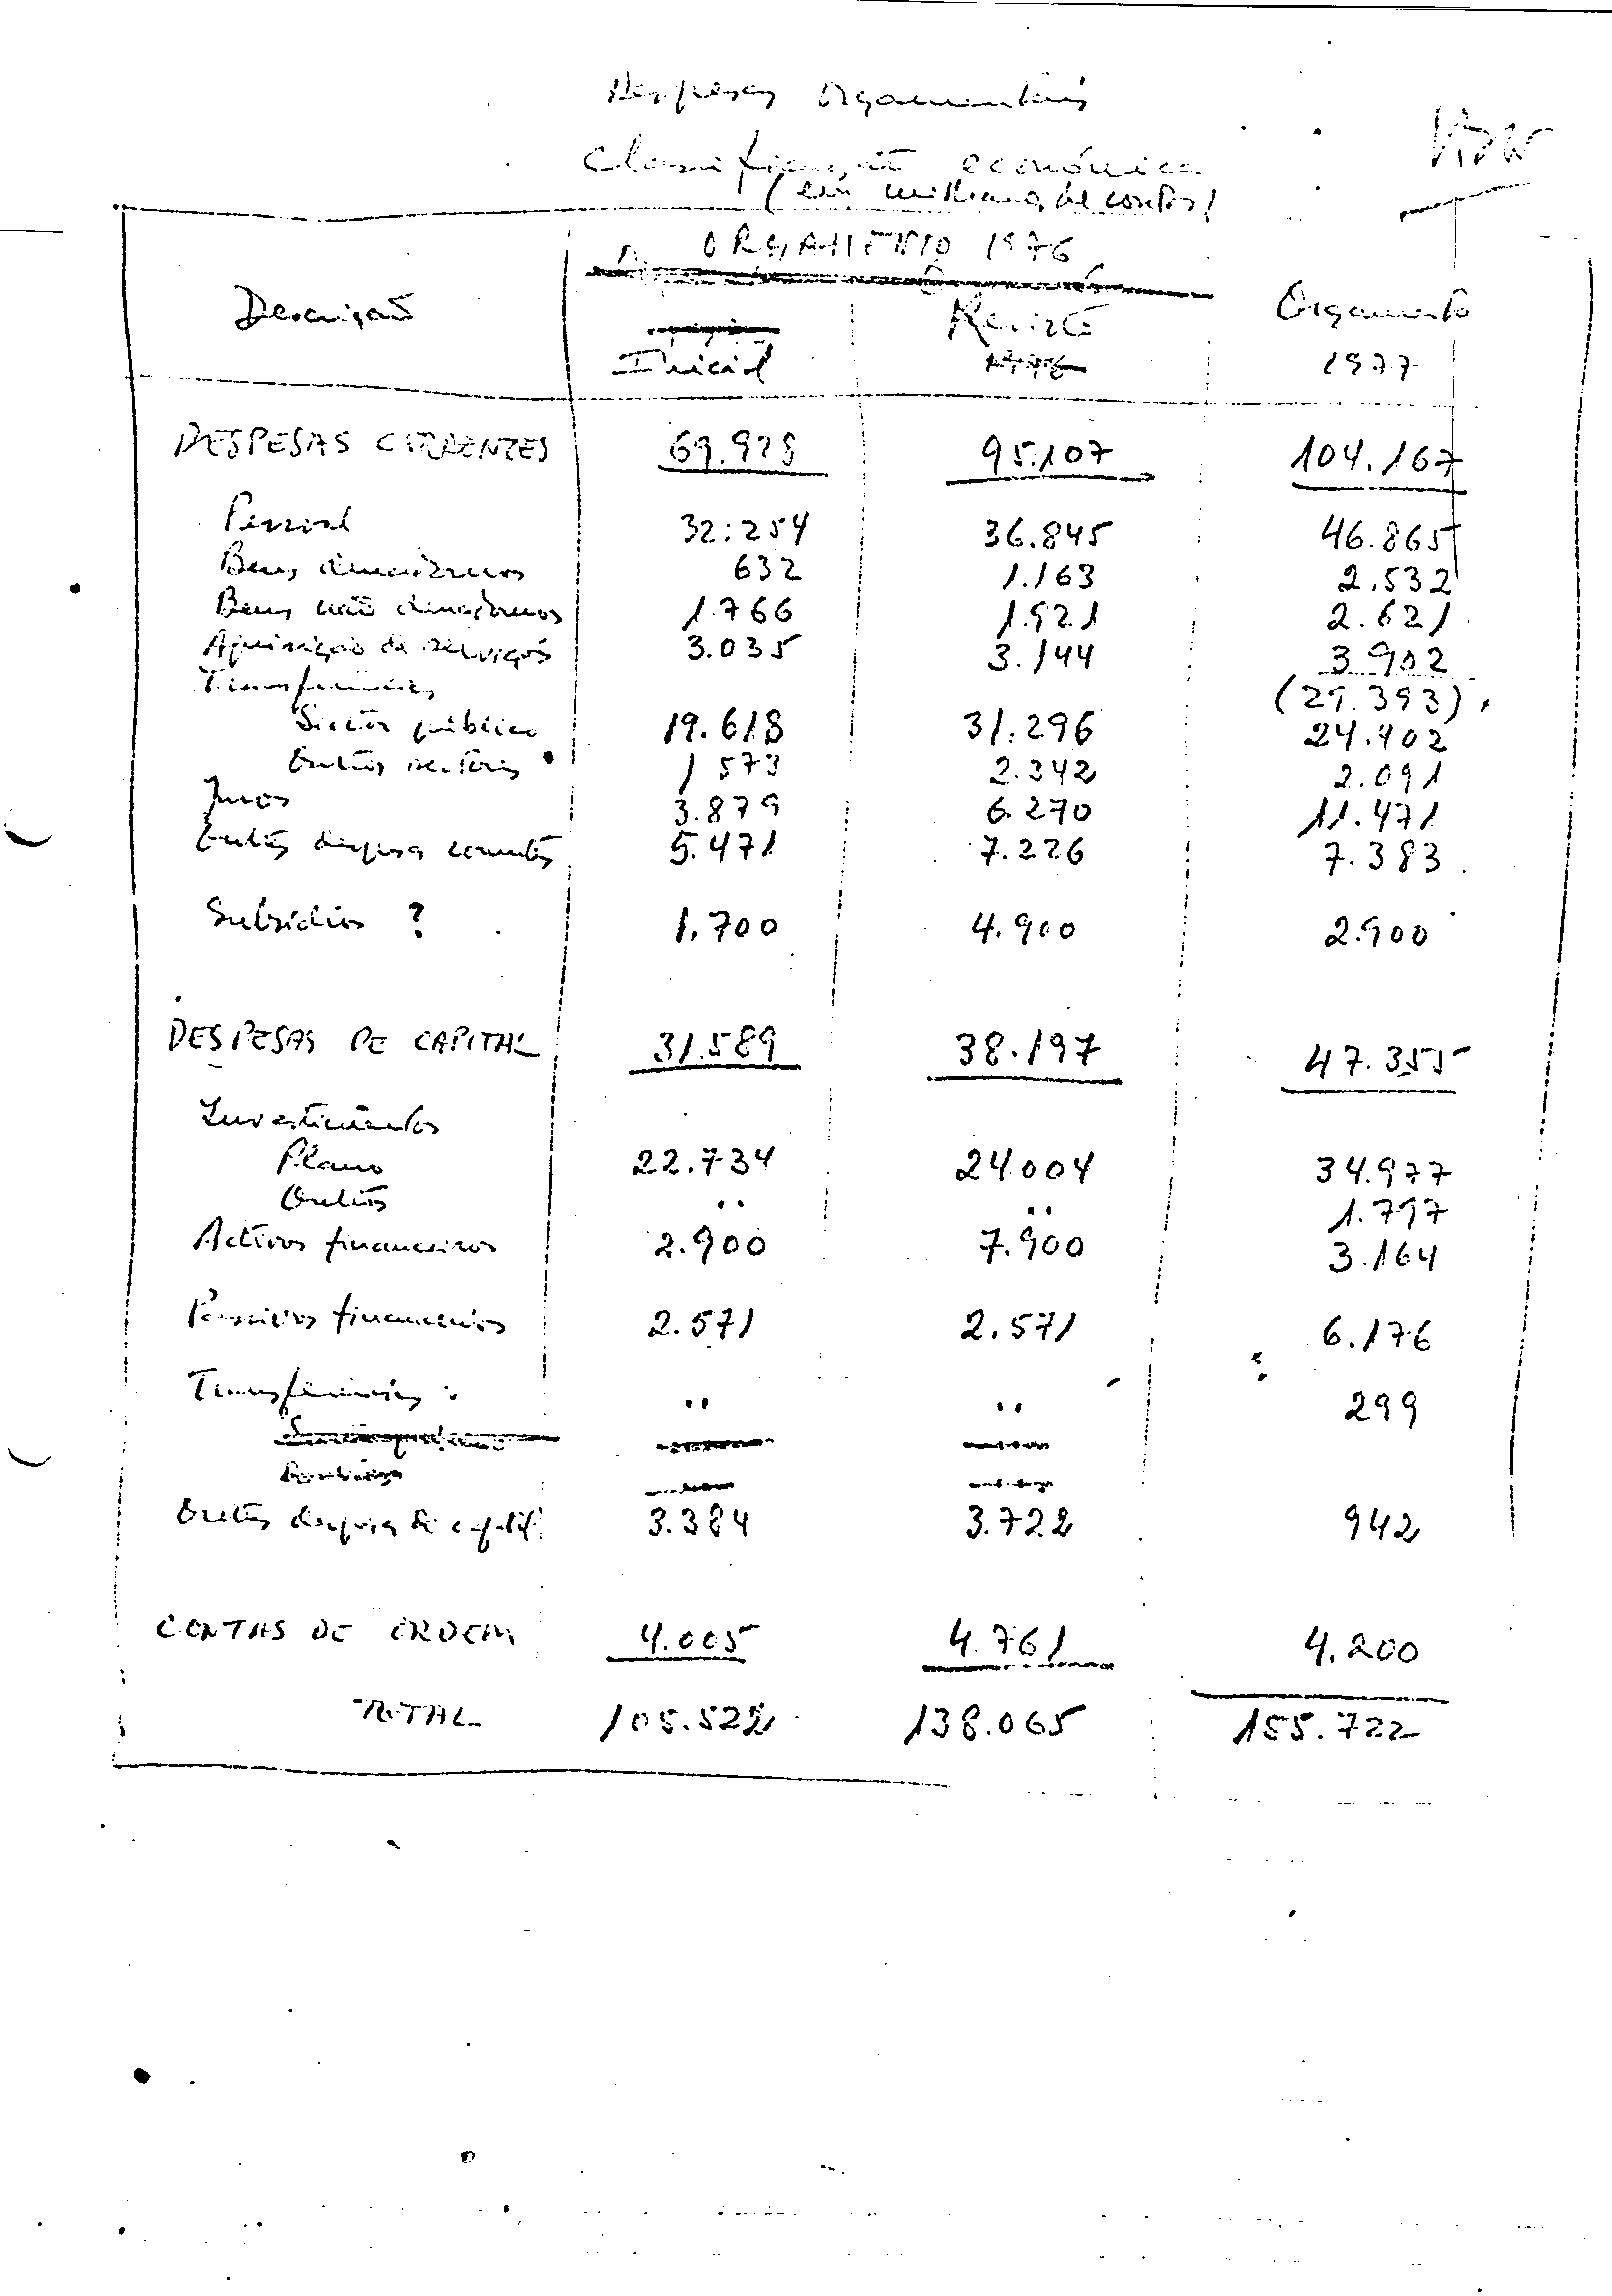 Despesas Orçamentais
Classificação económica
(em milhares de contos)
ORÇAMENTO 1976
Descrição Inicial Revisto Orçamento 1977
DESPESAS CORRENTES 69.928 95.107 104.167
Pessoal 32.254 36.845 46.865
Bens duradouros 632 1.163 2.532
Bens não duradouros 1.766 1.921 2.621
Aquisição de serviços 3.035 3.144 3.902
Transferências (29.393)
Sector público 19.618 31.296 24.402
Outros sectores 1 573 2.342 2.091
Juros 3.879 6.270 11.471
Outras despesas correntes 5.471 7.226 7.383
Subsídios ? 1.700 4.900 2.900
DESPESAS DE CAPITAL 31.589 38.197 47.355
Investimentos
Plano 22.734 24.004 34.977
Outros .. .. 1.797
Activos financeiros 2.900 7.900 3.164
Passivos financeiros 2.571 2.571 6.176
Transferências : .. .. 299
Outras despesas de capital 3.384 3.722 942
CONTAS DE ORDEM 4.005 4.761 4.200
TOTAL 105.522 138.065 155.722